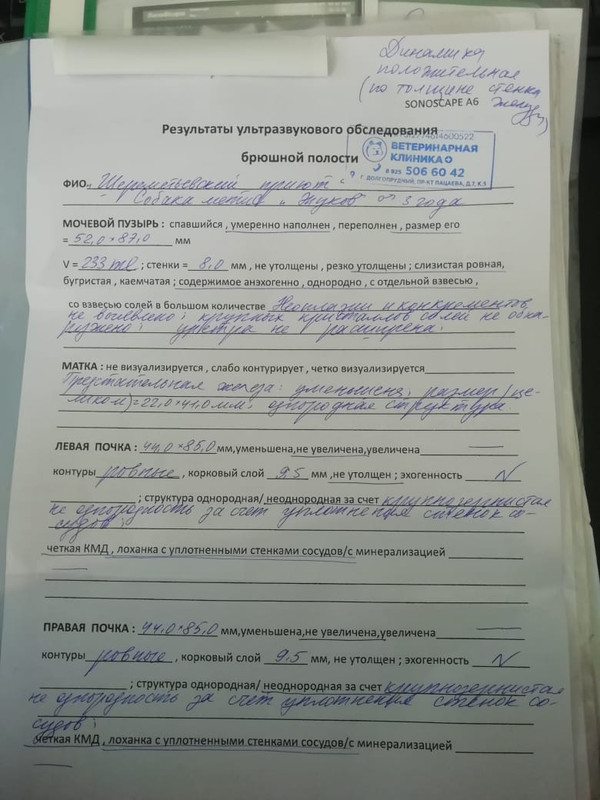 Динамика
положительная
(по толщине стенки
SONOSCAPE A6
Результаты ультразвукового обследования
брюшной полости
ВЕТЕРИНАРНАЯ
КЛИНИКА
8 925 506 60 42
Г. ДОЛГОПРУДНЫЙ, ПР-КТ ПАЦАЕВА, Д.7, К.5
ФИО Шереметьевский приют
Собака метис "Жуков" 3 года
МОЧЕВОЙ ПУЗЫРЬ : спавшийся , умеренно наполнен , переполнен , размер его
= 52,0×87,0 мм
V = 233 ml ; стенки = 8,0 мм , не утолщены , резко утолщены ; слизистая ровная,
бугристая , каемчатая ; содержимое анэхогенно , однородно , с отдельной взвесью ,
со взвесью солей в большом количестве Неоплазии и конкрементов
не выявлено; крупных кристаллов солей не обна-
ружено; уретра не расширена.
МАТКА : не визуализируется , слабо контурирует , четко визуализируется
Предстательная железа: уменьшена, размер (це-
ликом) = 22,0×41,0 мм; однородная структура
ЛЕВАЯ ПОЧКА : 44,0×85,0 мм,уменьшена,не увеличена,увеличена
контуры ровные , корковый слой 9.5 мм ,не утолщен ; эхогенность N
; структура однородная/ неоднородная за счет крупнозернистая
не однородность за счет уплотнения стенок со-
судов;
четкая КМД , лоханка с уплотненными стенками сосудов/с минерализацией
ПРАВАЯ ПОЧКА : 44,0×85,0 мм,уменьшена,не увеличена,увеличена
контуры ровные , корковый слой 9.5 мм, не утолщен ; эхогенность N
; структура однородная/ неоднородная за счет крупнозернистая
не однородность за счет уплотнения стенок со-
судов;
четкая КМД , лоханка с уплотненными стенками сосудов/с минерализацией